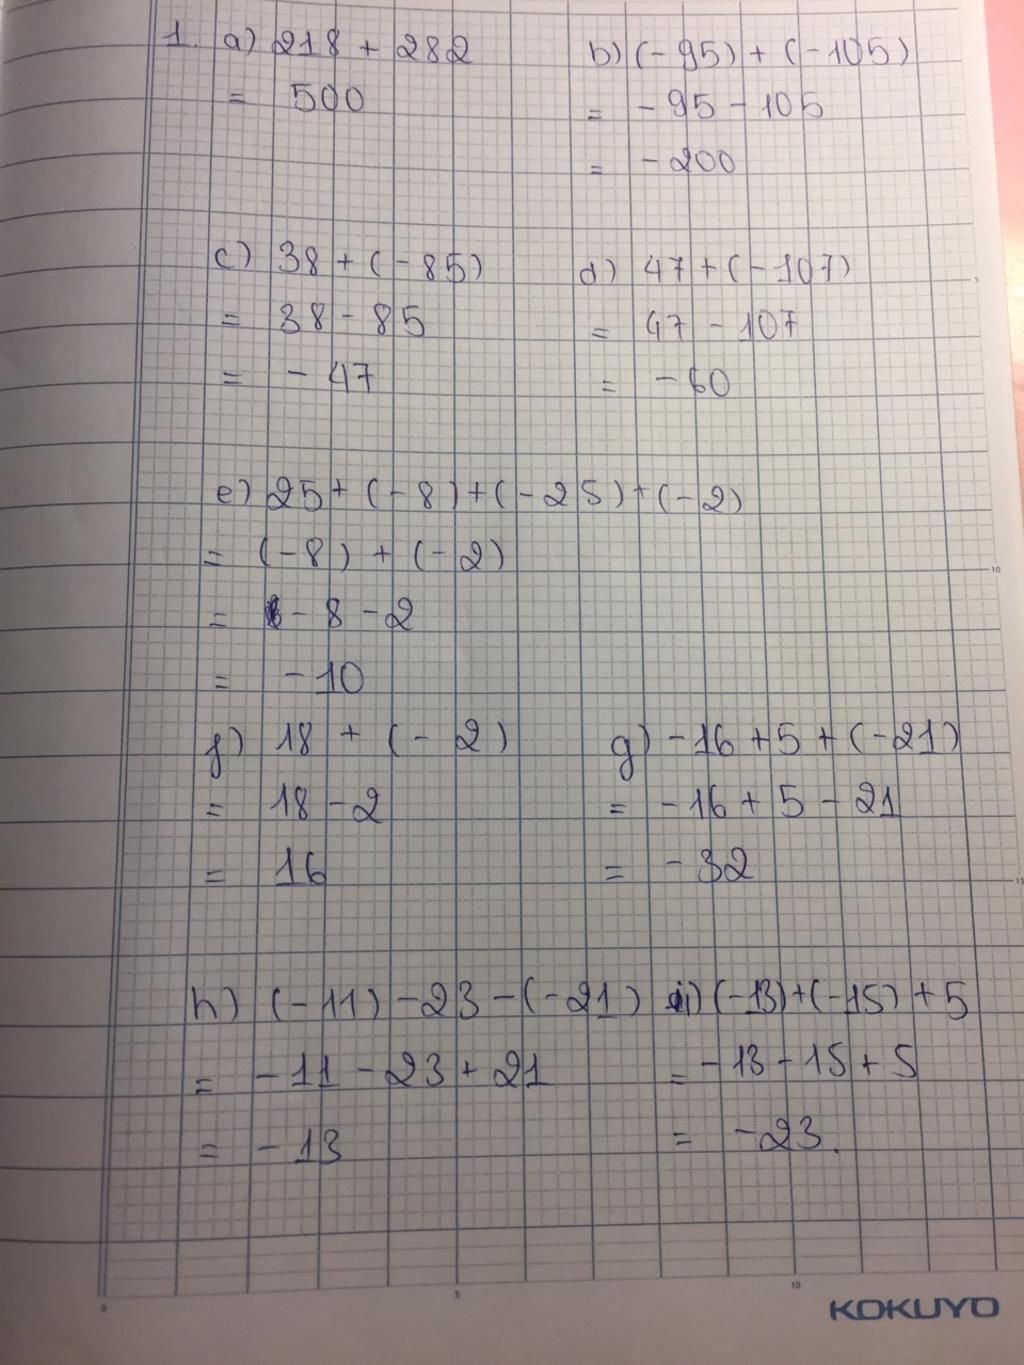 1. a) 218 + 282 b) (-95) + (-105)
= 500 = -95 - 105
= -200
c) 38 + (-85) d) 47 + (-107)
= 38 - 85 = 47 - 107
= -47 = -60
e) 25 + (-8) + (-25) + (-2)
= (-8) + (-2)
= -8 - 2
= -10
f) 18 + (-2) g) -16 + 5 + (-21)
= 18 - 2 = -16 + 5 - 21
= 16 = -32
h) (-11) - 23 - (-21) i) (-13) + (-15) + 5
= -11 - 23 + 21 = -13 - 15 + 5
= -13 = -23.
5
10
15
0 5 10
KOKUYO